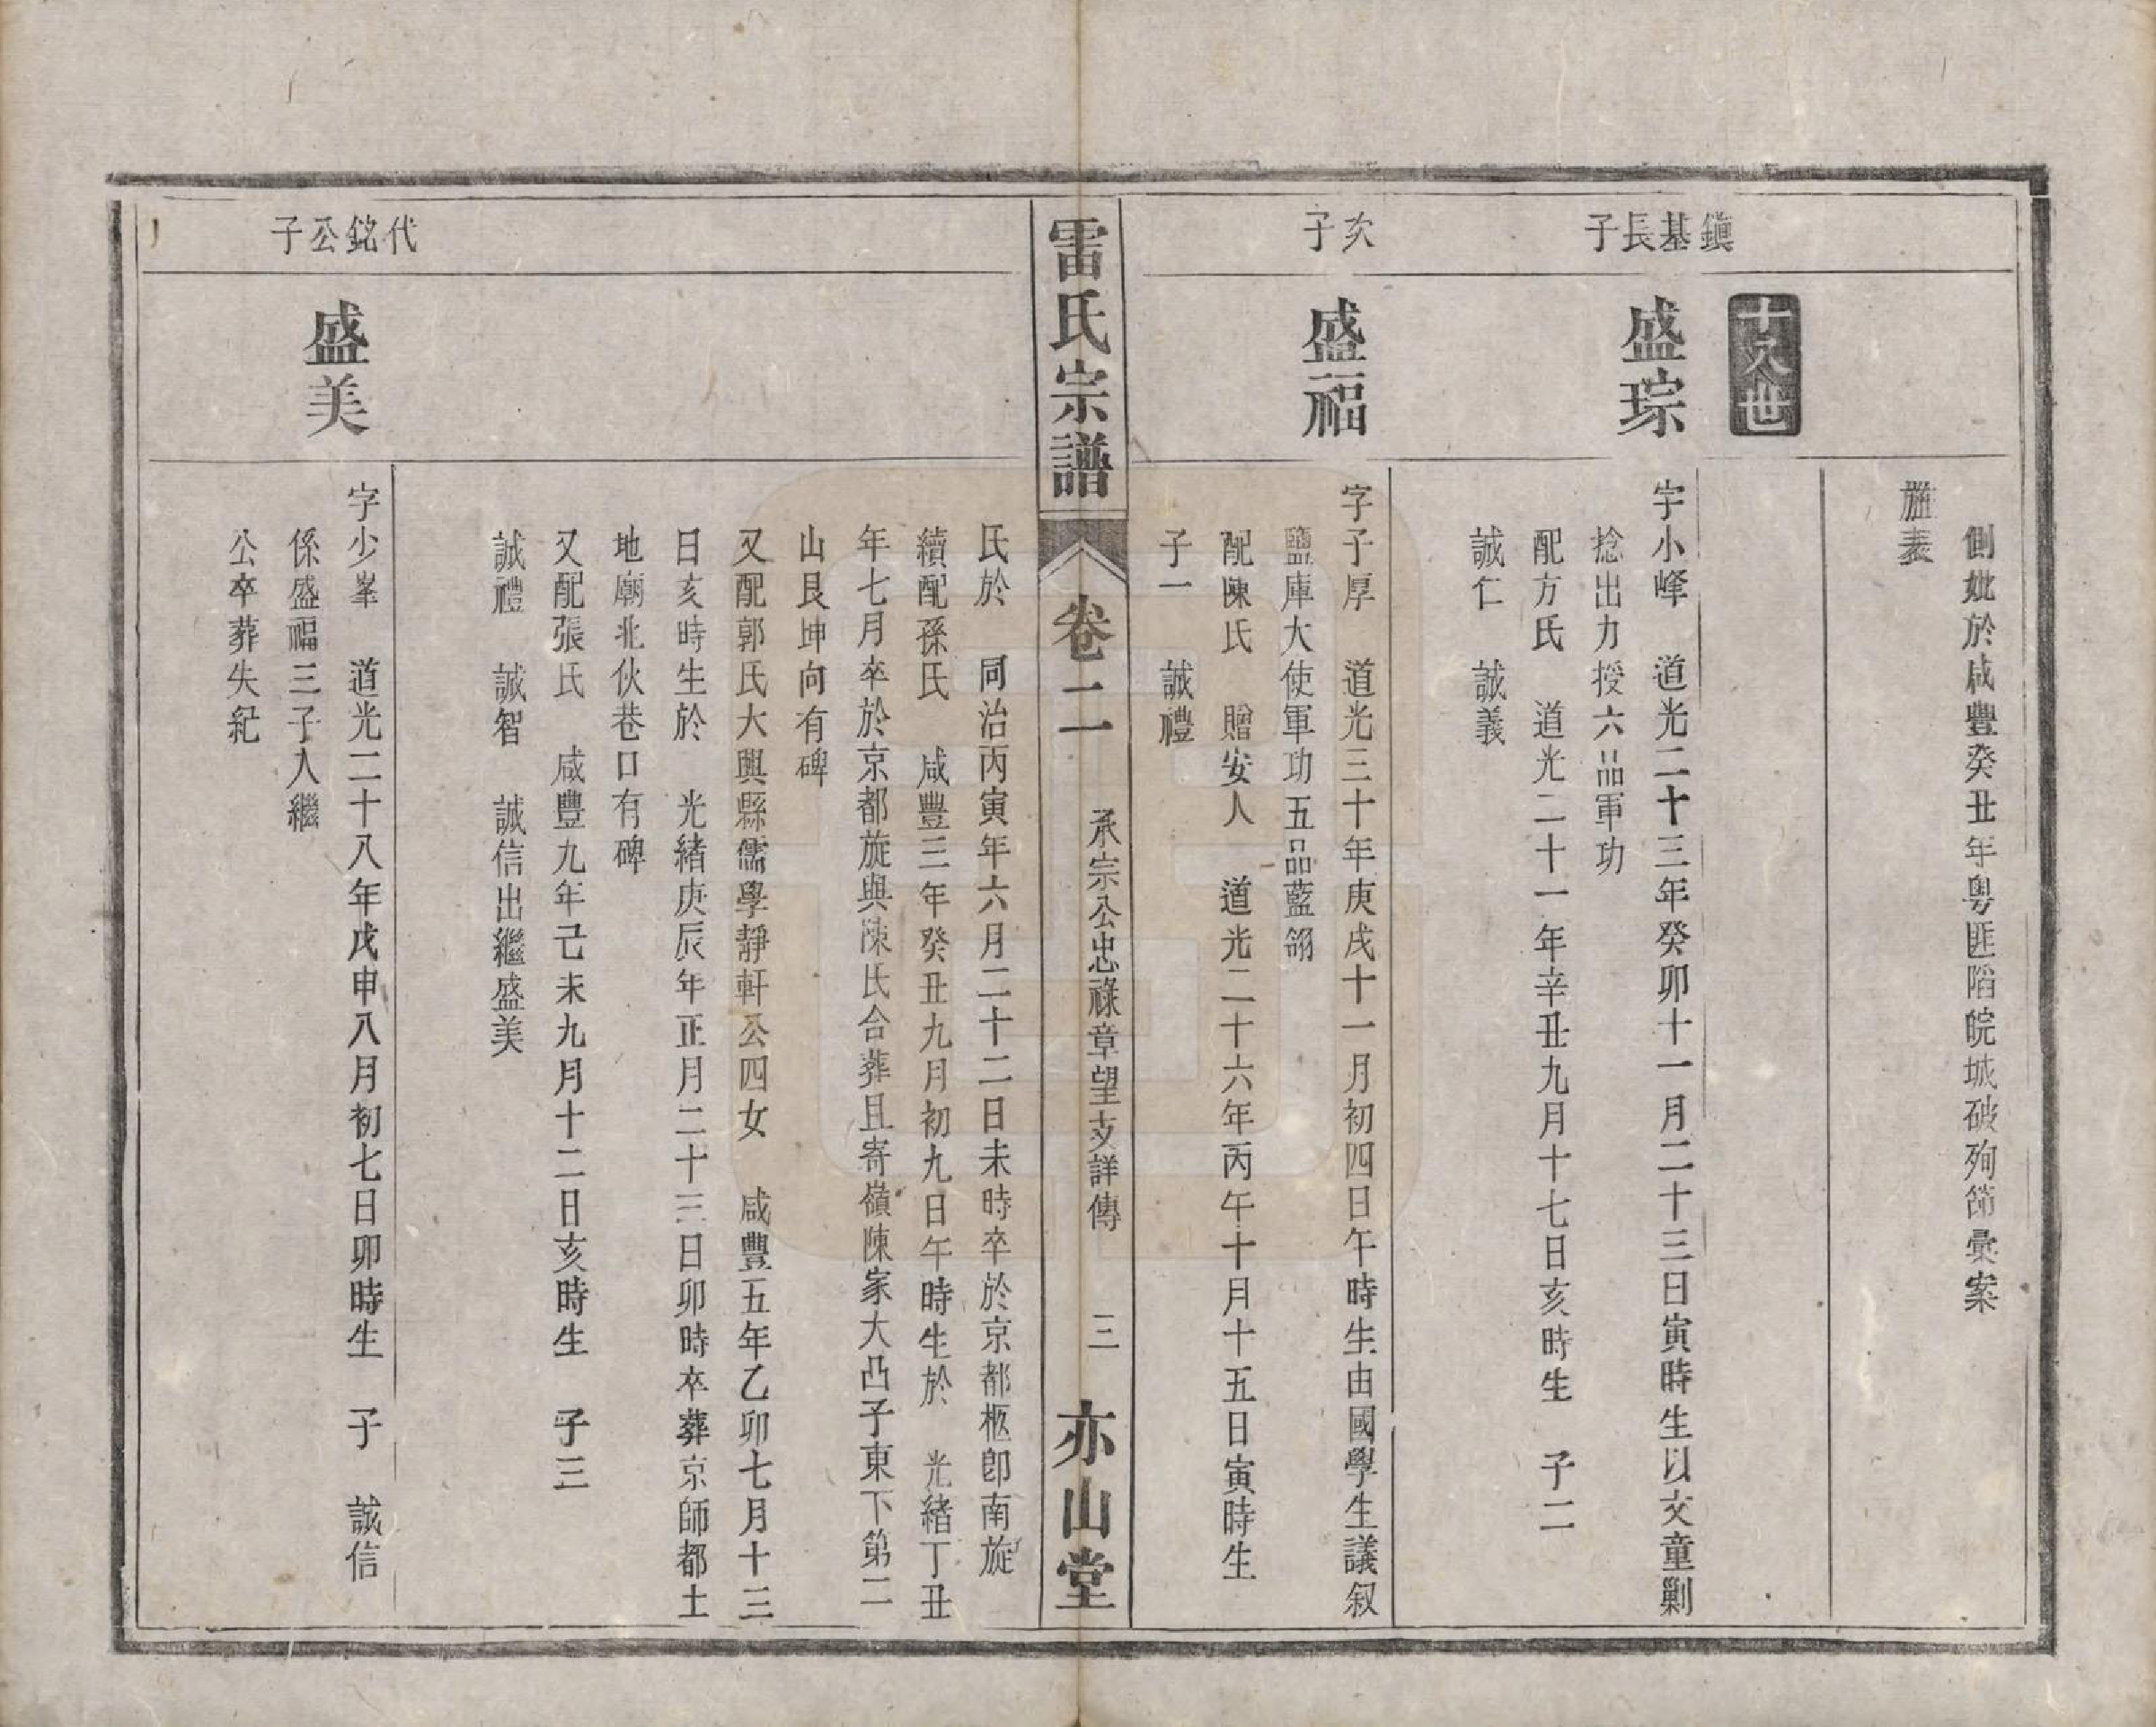 側妣於咸豐癸丑年粤匪陷皖城破殉節彙案
旌表
十八世
鎮基長子
盛琮
字小峰　道光二十三年癸卯十一月二十三日寅時生以文童剿
捻出力授六品軍功
配方氏　道光二十一年辛丑九月十七日亥時生　子二
誠仁　誠義
次子
盛福
字子厚　道光三十年庚戌十一月初四日午時生由國學生議叙
鹽庫大使軍功五品藍翎
配陳氏　贈安人　道光二十六年丙午十月十五日寅時生
子一　誠禮
雷氏宗譜　卷二　承宗公忠祿章望支詳傳　三　亦山堂
氏於　同治丙寅年六月二十二日未時卒於京都柩卽南旋
續配孫氏　咸豐三年癸丑九月初九日午時生於　光緒丁丑
年七月卒於京都旋與陳氏合葬且寄嶺陳家大凸子東下第二
山艮坤向有碑
又配郭氏大興縣儒學靜軒公四女　咸豐五年乙卯七月十三
日亥時生於　光緒庚辰年正月二十三日卯時卒葬京師都土
地廟北伙巷口有碑
又配張氏　咸豐九年己未九月十二日亥時生　子三
誠禮　誠智　誠信出繼盛美
代銘公子
盛美
字少峯　道光二十八年戊申八月初七日卯時生　子　誠信
係盛福三子入繼
公卒葬失紀